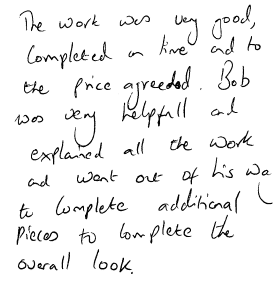 The work was very good,
Completed on time and to
the price agreeded. Bob
was very helpfull and
explained all the work
and went out of his wa
to complete additional
pieces to complete the
overall look.